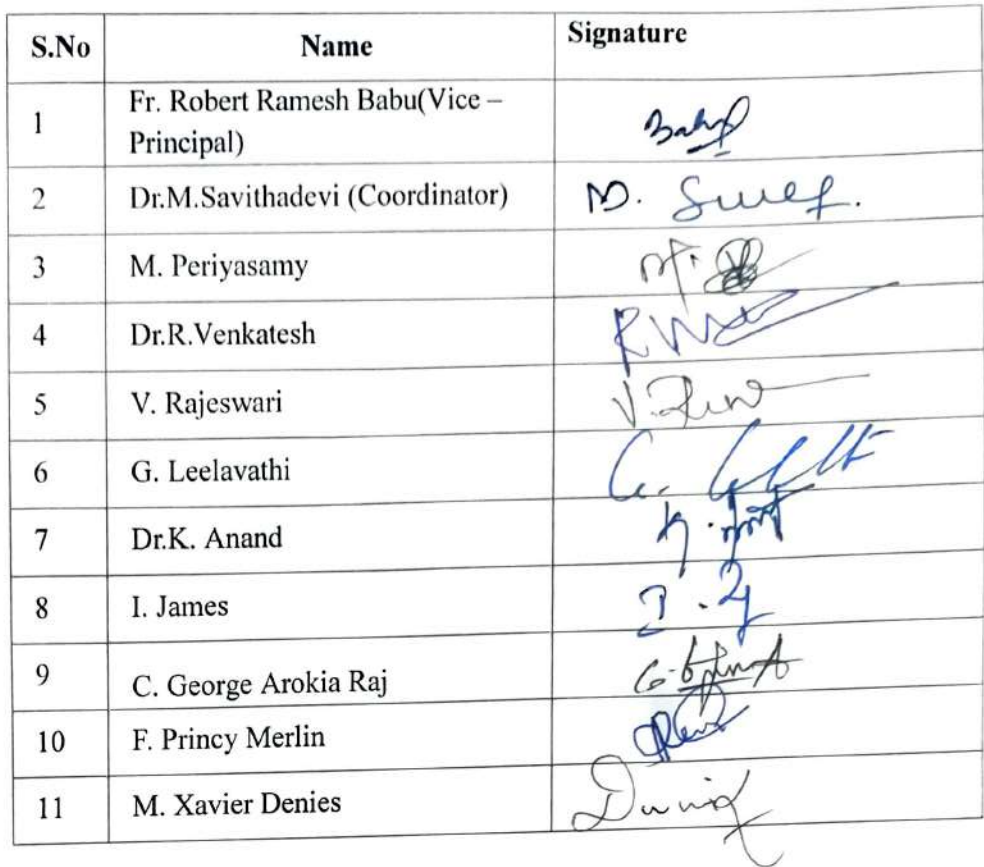 S.No Name Signature
1 Fr. Robert Ramesh Babu(Vice –
Principal)
2 Dr.M.Savithadevi (Coordinator) M.
3 M. Periyasamy M.
4 Dr.R.Venkatesh
5 V. Rajeswari V.
6 G. Leelavathi G.
7 Dr.K. Anand K.
8 I. James I.
9 C. George Arokia Raj
10 F. Princy Merlin
11 M. Xavier Denies